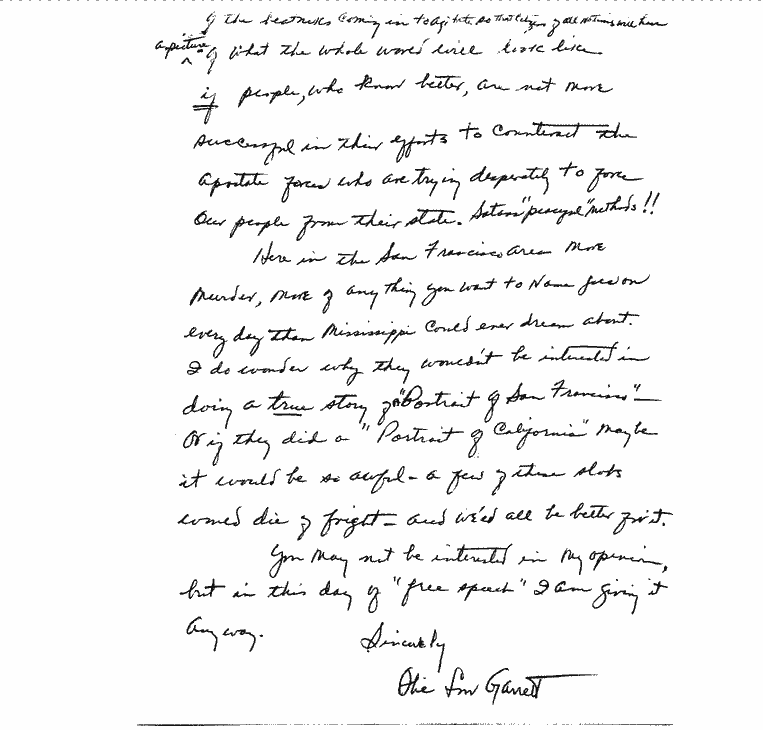 of the beatniks coming in to agitate, so that citizens of all nations will have
a picture of what the whole world will look like
if people, who know better, are not more
successful in their efforts to counteract the
apostate forces who are trying desperately to force
our people from their state. Satans "peaceful" methods!!
Here in the San Francisco area more
murder, more of any thing you want to name goes on
every day than Mississippi could ever dream about.
I do wonder why they wouldn't be interested in
doing a true story of a "Portrait of San Francisco" —
Or if they did a "Portrait of California" maybe
it would be so awful - a few of these slobs
would die of fright — and we'd all be better for it.
You may not be interested in my opinion,
but in this day of "free speech" I am giving it
anyway.
Sincerely
Garrett